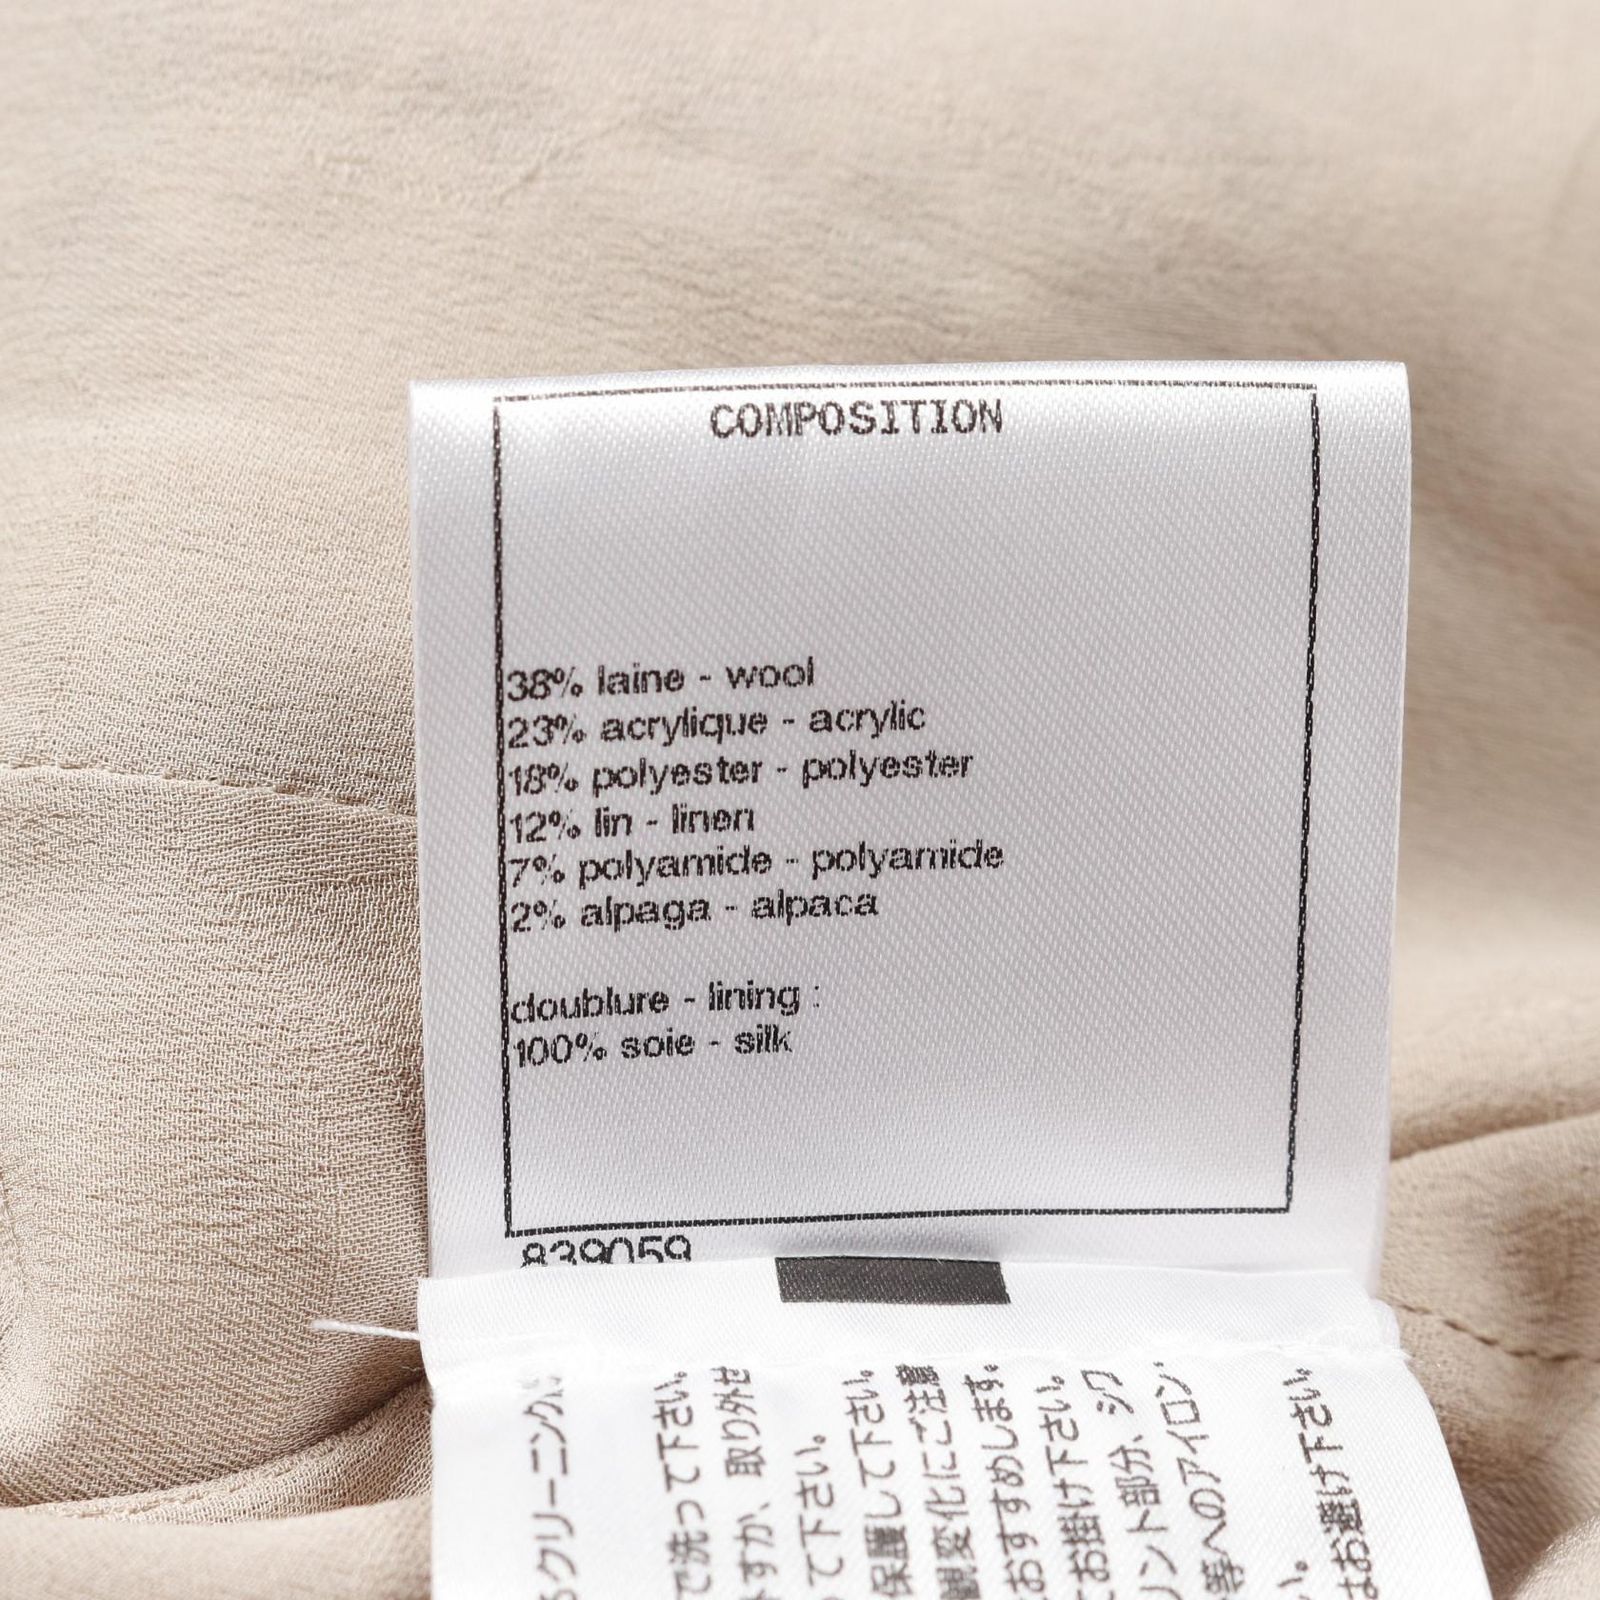 COMPOSITION
38% laine - wool
23% acrylique - acrylic
18% polyester - polyester
12% lin - linen
7% polyamide - polyamide
2% alpaga - alpaca
doublure - lining :
100% soie - silk
839059
はお避け下さい。
い。
等へのアイロン
ント部分、シワ
お掛け下さい。
おすすめします。
観変化にご注意
保護して下さい。
って下さい。
すか、取り外せ
で洗って下さい。
るクリーニング